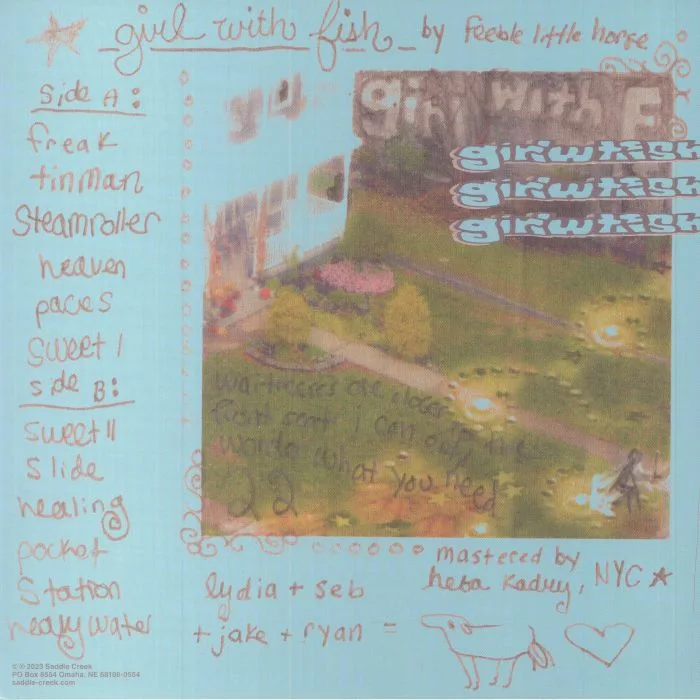 girl with fish by feeble little horse
side A:
freak
tinman
Steamroller
heaven
paces
sweet I
side B:
sweet II
slide
healing
pocket
station
heavy water
girl with F
girlwfish
girlwfish
girlwfish
waitresses are closer to the
front seat i can only
wonder what you need
22
lydia + seb
+ jake + ryan =
mastered by
heba kadry, NYC
℗ © 2023 Saddle Creek
PO Box 8554 Omaha, NE 68108-0554
saddle-creek.com